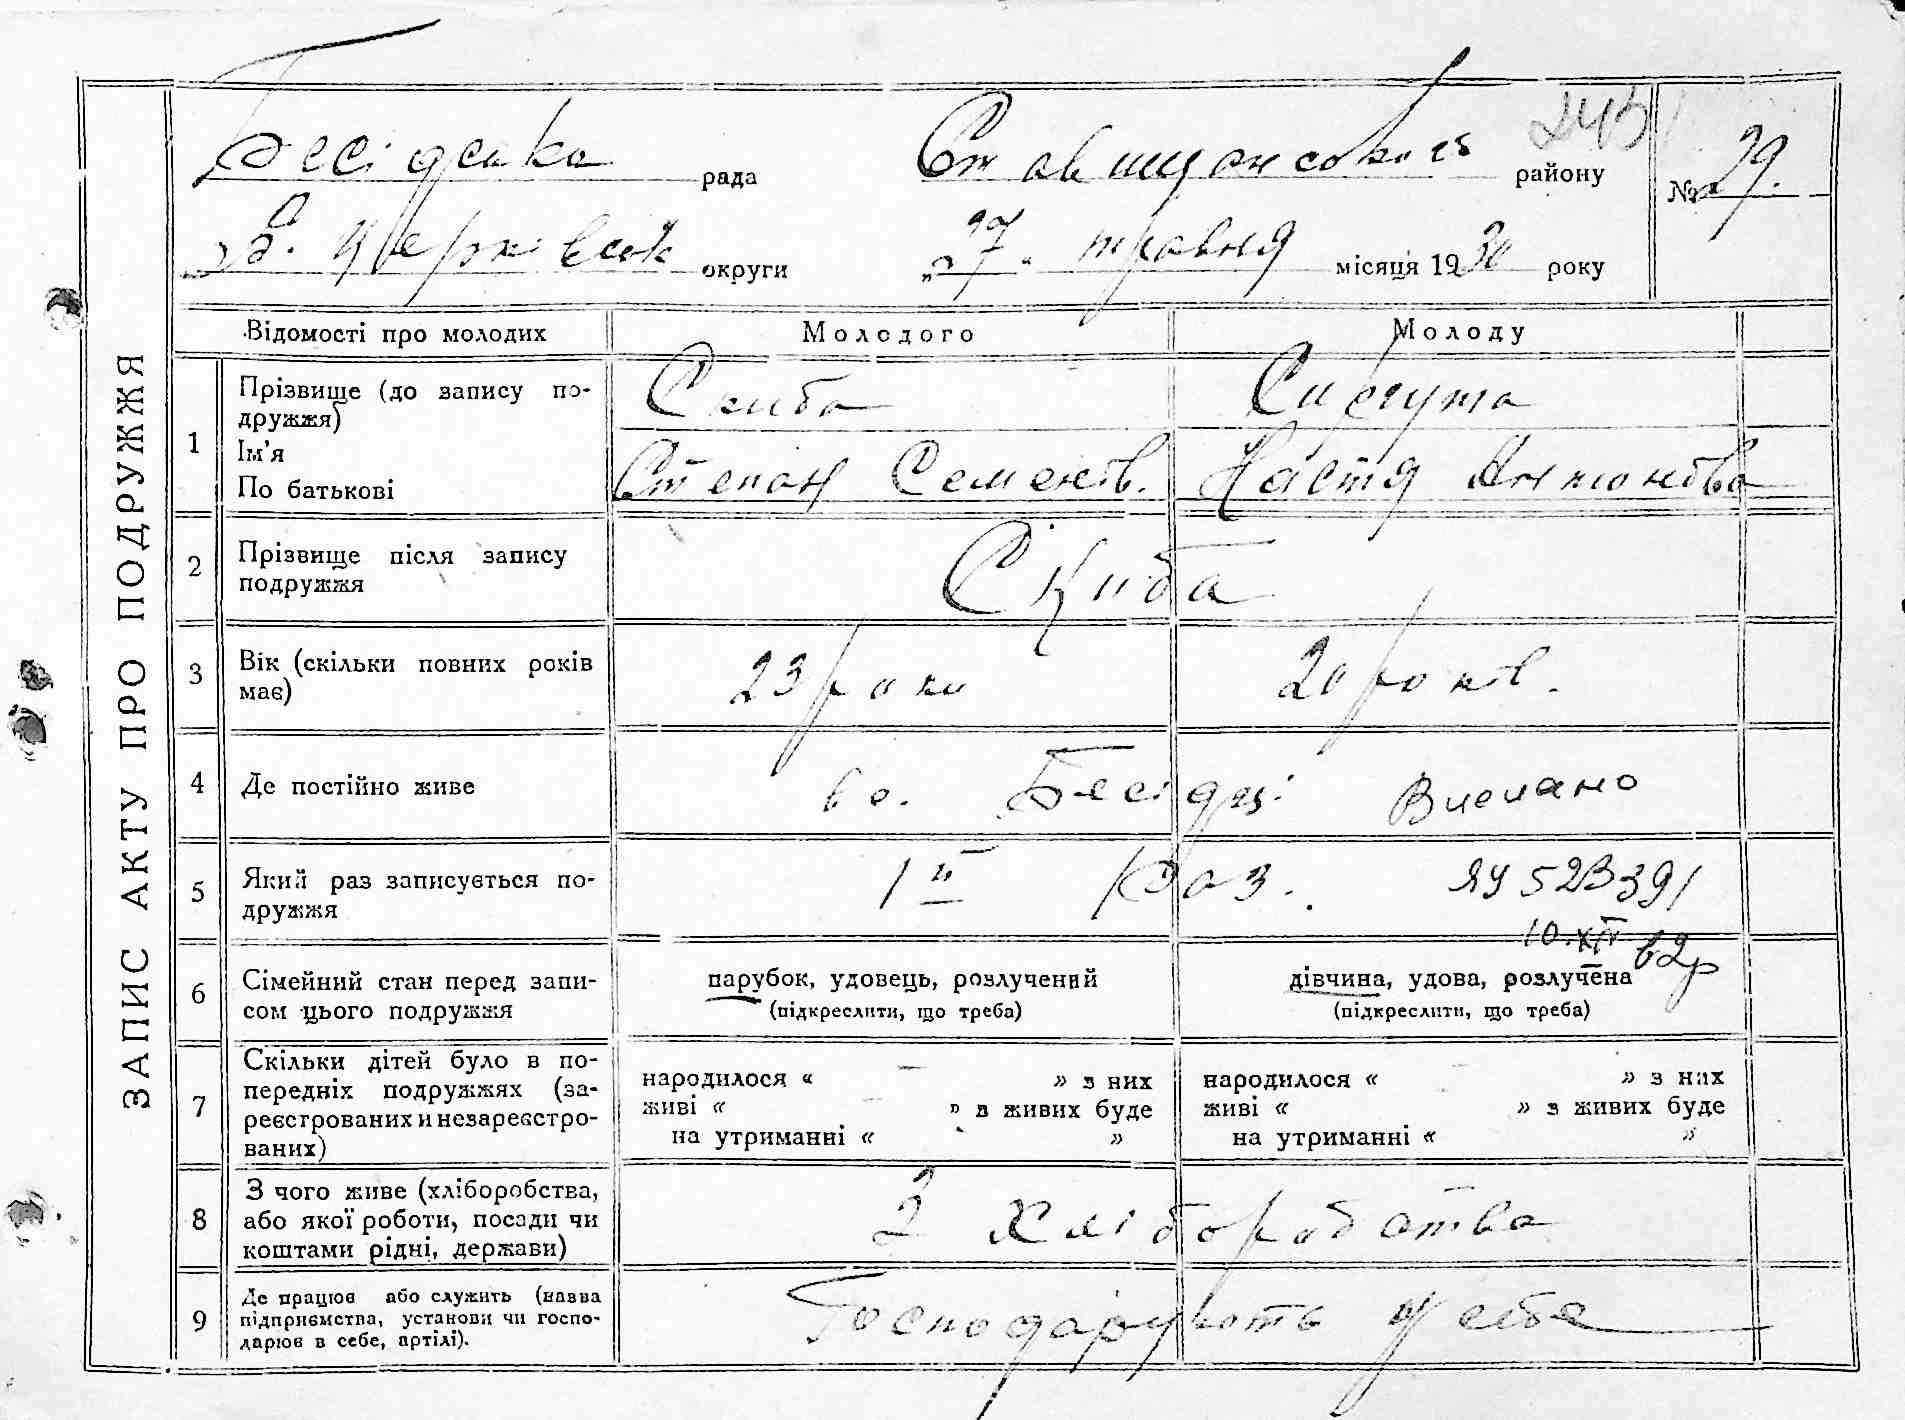 ЗАПИС АКТУ ПРО ПОДРУЖЖЯ
Бесідська рада Ставищанського району
№ 29.
Б. Церківськ округи „27" травня місяця 1930 року
Відомості про молодих Молодого Молоду
1 Прізвище (до запису по-
дружжя) Скиба
Ім'я
По батькові Степан Семенов. Настя Антонівна
2 Прізвище після запису
подружжя Скиба
3 Вік (скільки повних років
має) 23 роки 20 років.
4 Де постійно живе в с. Бесідці Виписано
5 Який раз записується по-
дружжя 1й раз. ЯУ 523391
6 Сімейний стан перед запи-
сом цього подружжя
парубок, удовець, розлучений
(підкреслити, що треба)
дівчина, удова, розлучена
(підкреслити, що треба)
7 Скільки дітей було в по-
передніх подружжях (за-
реєстрованих и незареєстро-
ваних)
народилося « — » з них
живі « — » в живих буде
на утриманні « »
народилося « — » з них
живі « » з живих буде
на утриманні « »
8 З чого живе (хліборобства,
або якої роботи, посади чи
коштами рідні, держави)
З хліборобства
9 Де працює або служить (назва
підприємства, установи чи госпо-
дарює в себе, артілі).
Господарують у себе